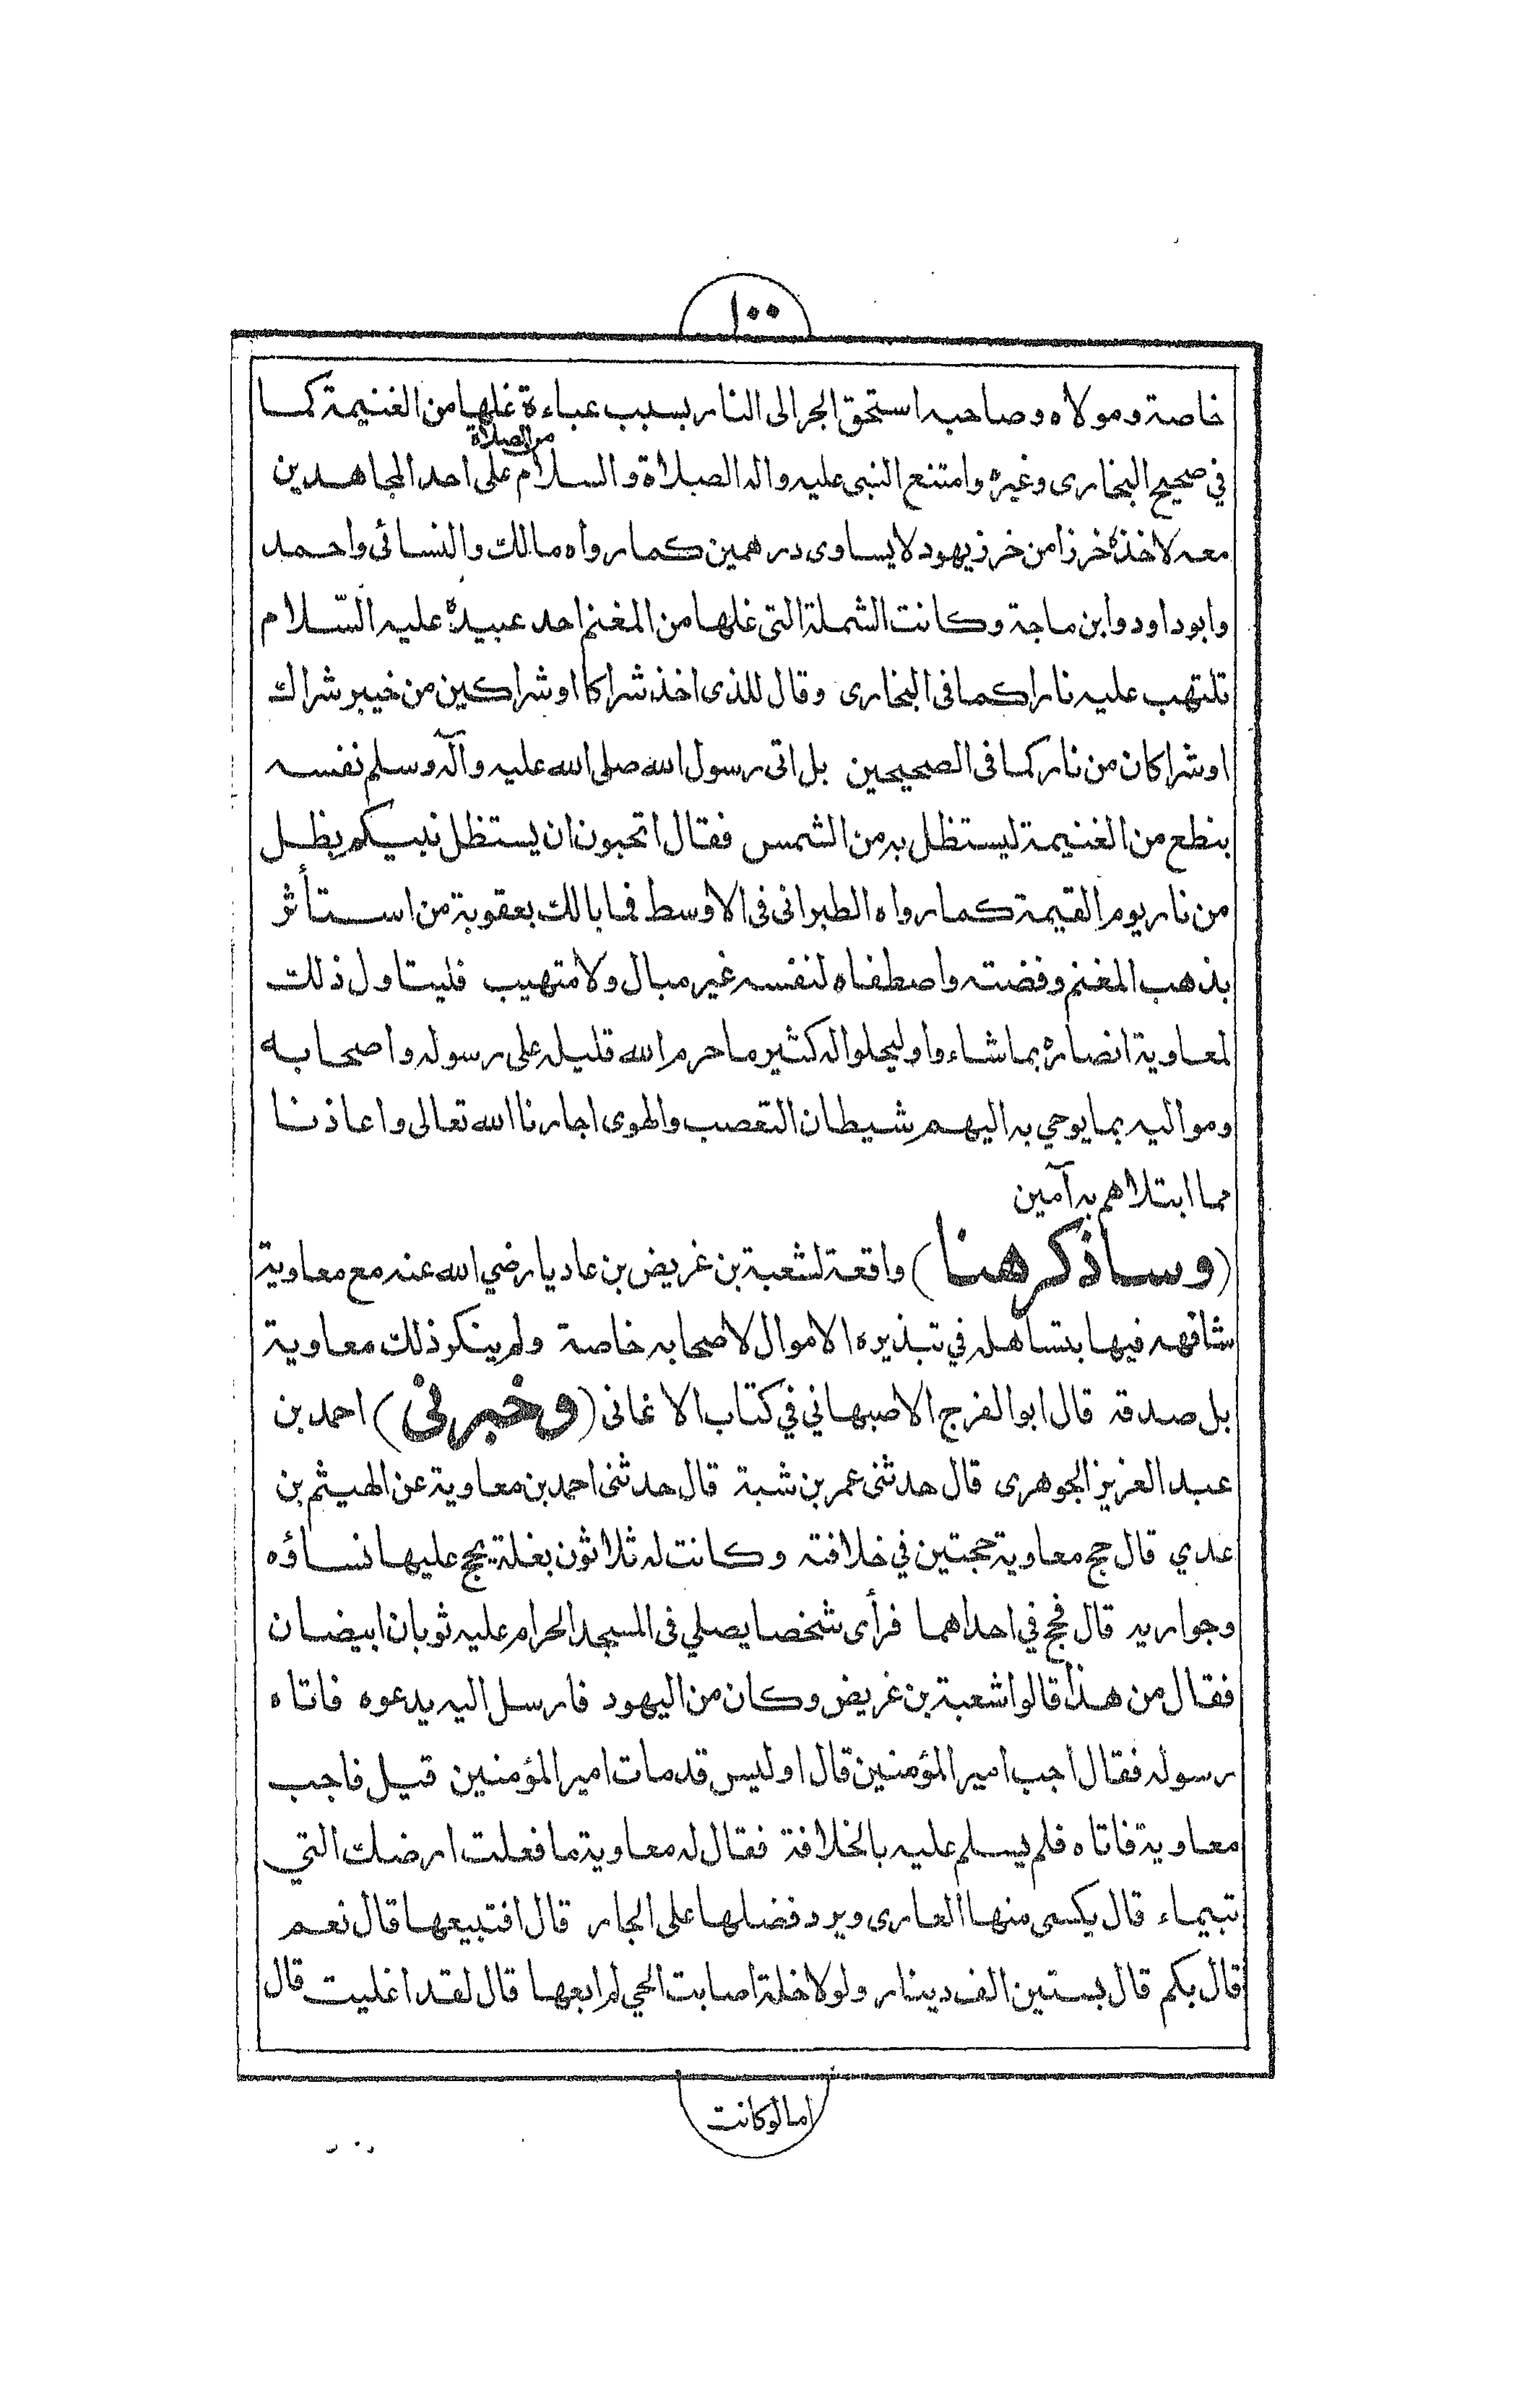 ١٠٠
خاصة ومولاه وصاحبه استحق الجر الى النار بسبب عباءة غلها من الغنيمة كما
من الصلاة
في صحيح البخارى وغيره وامتنع النبى عليه واله الصلاة والسلام على احد المجاهدين
معه لاخذه خرزا من خرز يهود لا يساوى درهمين كما رواه مالك والنسائى واحمد
وابوداود وابن ماجة وكانت الشملة التى غلها من المغنم احد عبيده عليه السّلام
تلتهب عليه نارا كما فى البخارى وقال للذى اخذ شراكا اوشراكين من خيبر شراك
اوشراكان من نار كما فى الصحيحين بل اتى رسول الله صلى الله عليه وآله وسلم نفسه
بنطع من الغنيمة ليستظل به من الشمس فقال اتحبون ان يستظل نبيكم بظل
من نار يوم القيمة كما رواه الطبرانى فى الاوسط فما بالك بعقوبة من استأثر
بذهب المغنم وفضته واصطفاه لنفسه غير مبال ولا متهيب فليتاول ذلك
لمعاوية انصاره بما شاءوا وليحلوا له كثير ما حرم الله قليله على رسوله واصحابه
ومواليه بما يوحي به اليهم شيطان التعصب والهوى اجارنا الله تعالى واعاذنا
مما ابتلاهم به آمين
(وساذكر هنا) واقعة لشعبة بن غريض بن عاديا رضي الله عنه مع معاوية
شافهه فيها بتساهله في تبذيره الاموال لاصحابه خاصة ولم ينكر ذلك معاوية
بل صدقه قال ابو الفرج الاصبهاني في كتاب الاغانى (وخبرنى) احمد بن
عبد العزيز الجوهرى قال حدثنى عمر بن شبة قال حدثنى احمد بن معاوية عن الهيثم بن
عدي قال حج معاوية حجتين في خلافته وكانت له ثلاثون بغلة يحج عليها نساؤه
وجواريه قال فحج في احداهما فرأى شخصا يصلي فى المسجد الحرام عليه ثوبان ابيضان
فقال من هذا قالوا شعبة بن غريض وكان من اليهود فارسل اليه يدعوه فاتاه
رسوله فقال اجب امير المؤمنين قال اوليس قد مات امير المؤمنين قيل فاجب
معاوية فاتاه فلم يسلم عليه بالخلافة فقال له معاوية ما فعلت ارضك التي
بتيماء قال يكسى منها العارى ويرد فضلها على الجار قال افتبيعها قال نعم
قال بكم قال بستين الف دينار ولولا خلة اصابت الحي لم ابعها قال لقد اغليت قال
اما لوكانت